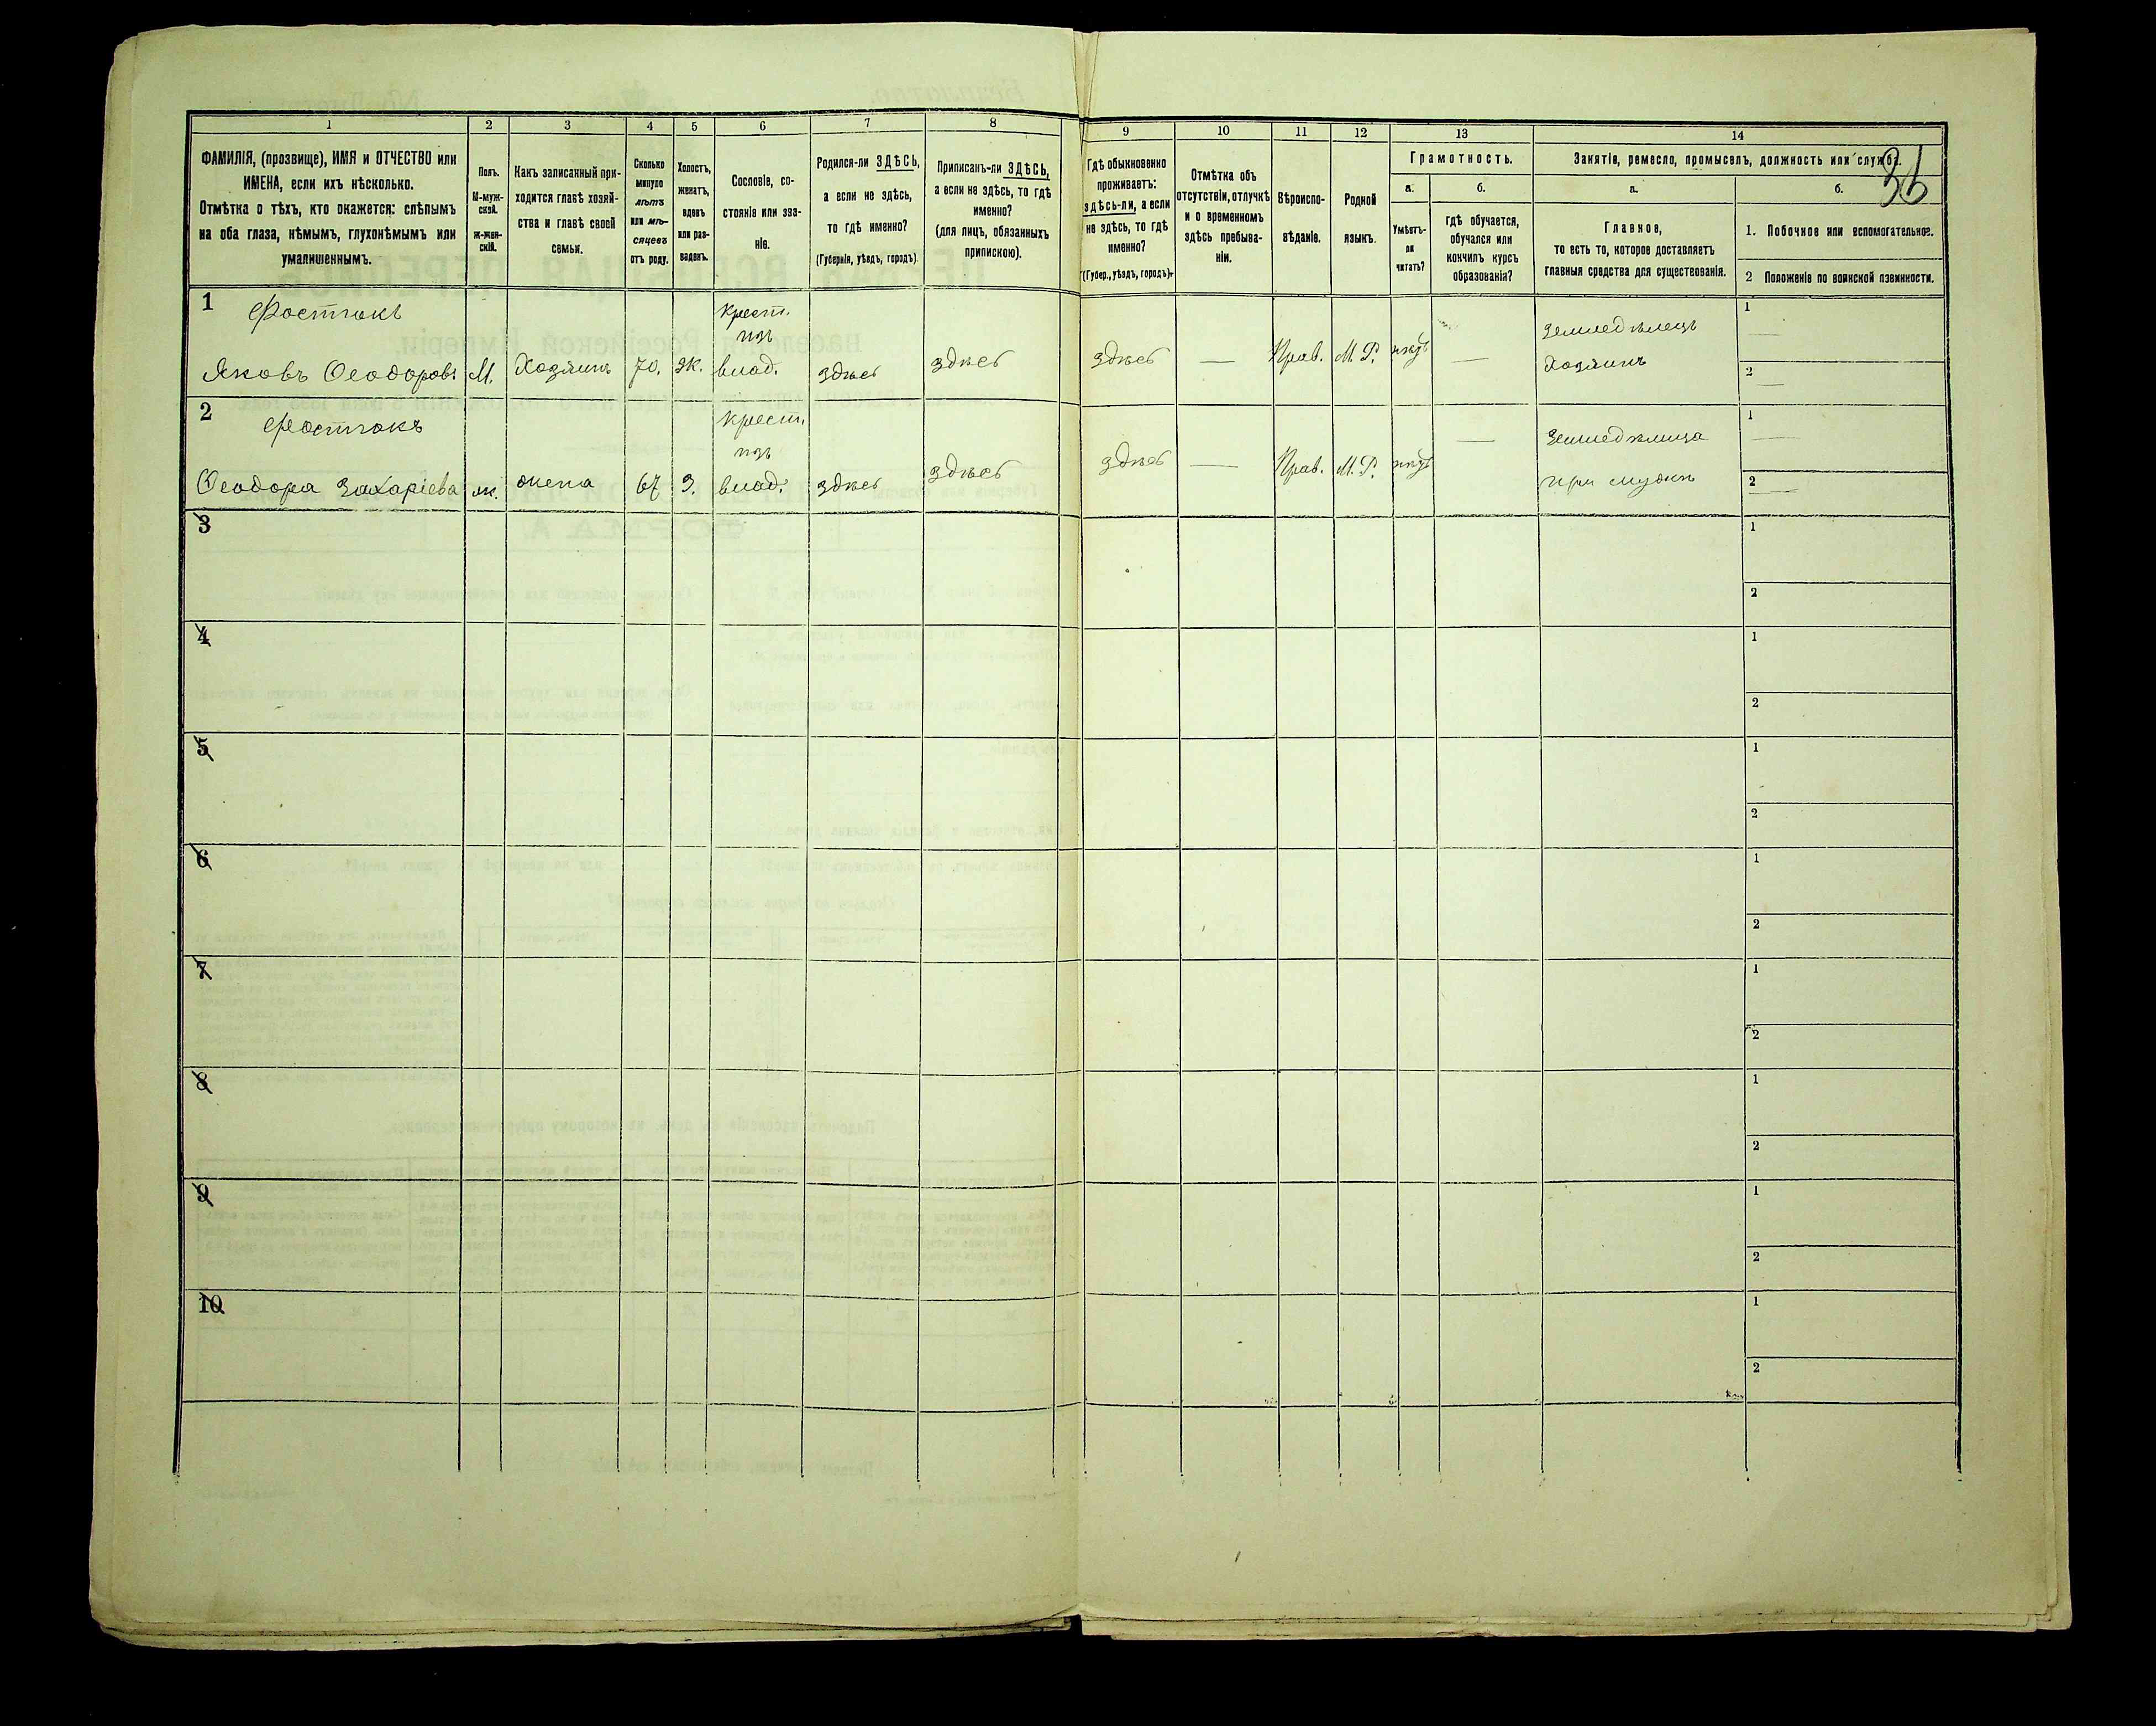 1 2 3 4 5 6 7 8 9 10 11 12 13 14
36
ФАМИЛІЯ, (прозвище), ИМЯ и ОТЧЕСТВО или
ИМЕНА, если ихъ нѣсколько.
Отмѣтка о тѣхъ, кто окажется: слѣпымъ
на оба глаза, нѣмымъ, глухонѣмымъ или
умалишеннымъ.
Полъ.
М-муж-
ской.
ж-жен-
скій.
Какъ записанный при-
ходится главѣ хозяй-
ства и главѣ своей
семьи.
Сколько
минуло
лѣтъ
или мѣ-
сяцевъ
отъ роду.
Холостъ,
женатъ,
вдовъ
или раз-
веденъ.
Сословіе, со-
стояніе или зва-
ніе.
Родился-ли ЗДѢСЬ,
а если не здѣсь,
то гдѣ именно?
(Губернія, уѣздъ, городъ).
Приписанъ-ли ЗДѢСЬ,
а если не здѣсь, то гдѣ
именно?
(для лицъ, обязанныхъ
припискою).
Гдѣ обыкновенно
проживаетъ:
здѣсь-ли, а если
не здѣсь, то гдѣ
именно?
(Губер., уѣздъ, городъ).
Отмѣтка объ
отсутствіи, отлучкѣ
и о временномъ
здѣсь пребыва-
ніи.
Вѣроиспо-
вѣданіе.
Родной
языкъ.
Грамотность.
а.
Умѣетъ-
ли
читать?
б.
гдѣ обучается,
обучался или
кончилъ курсъ
образованія?
Занятіе, ремесло, промыселъ, должность или служба.
а.
Главное,
то есть то, которое доставляетъ
главныя средства для существованія.
б.
1. Побочное или вспомогательное.
2 Положеніе по воинской повинности.
1 Фостякъ
Яковъ Ѳеодоровъ М. Хозяинъ 70. Ж. Крест. изъ влад. здѣсь здѣсь здѣсь — Прав. М. Р. — Земледѣлецъ Хозяинъ 1 — 2 —
2 Фостякъ
Ѳеодора Захаріева ж. жена 67 З. Крест. изъ влад. здѣсь здѣсь здѣсь — Прав. М. Р. — при мужѣ 1 — 2 —
3 1 2
4 1 2
5 1 2
6 1 2
7 1 2
8 1 2
9 1 2
10 1 2